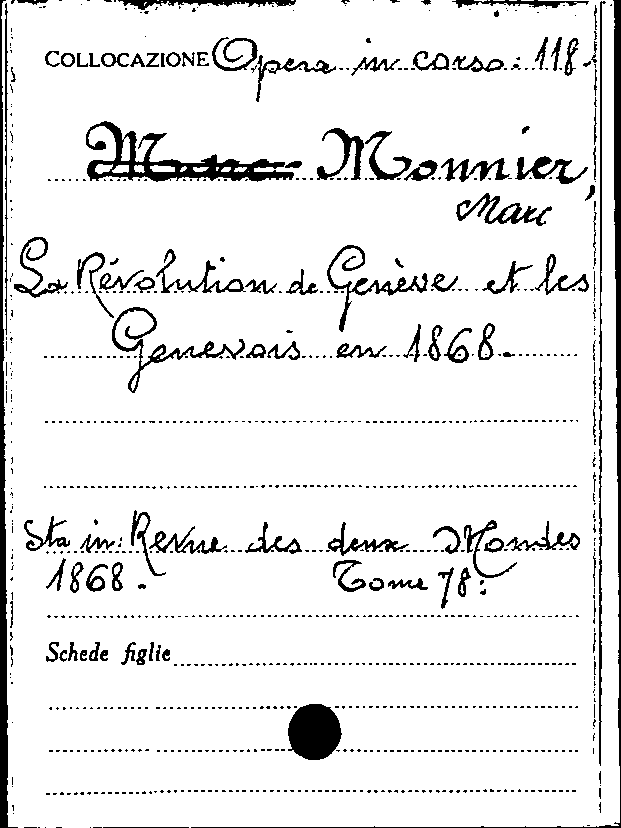 COLLOCAZIONE Opera in corso: 118.
Marc Monnier,
Marc
La Révolution de Genève et les
Genevois en 1868.
Sta in: Revue des deux Mondes
1868. Tome 78:
Schede figlie